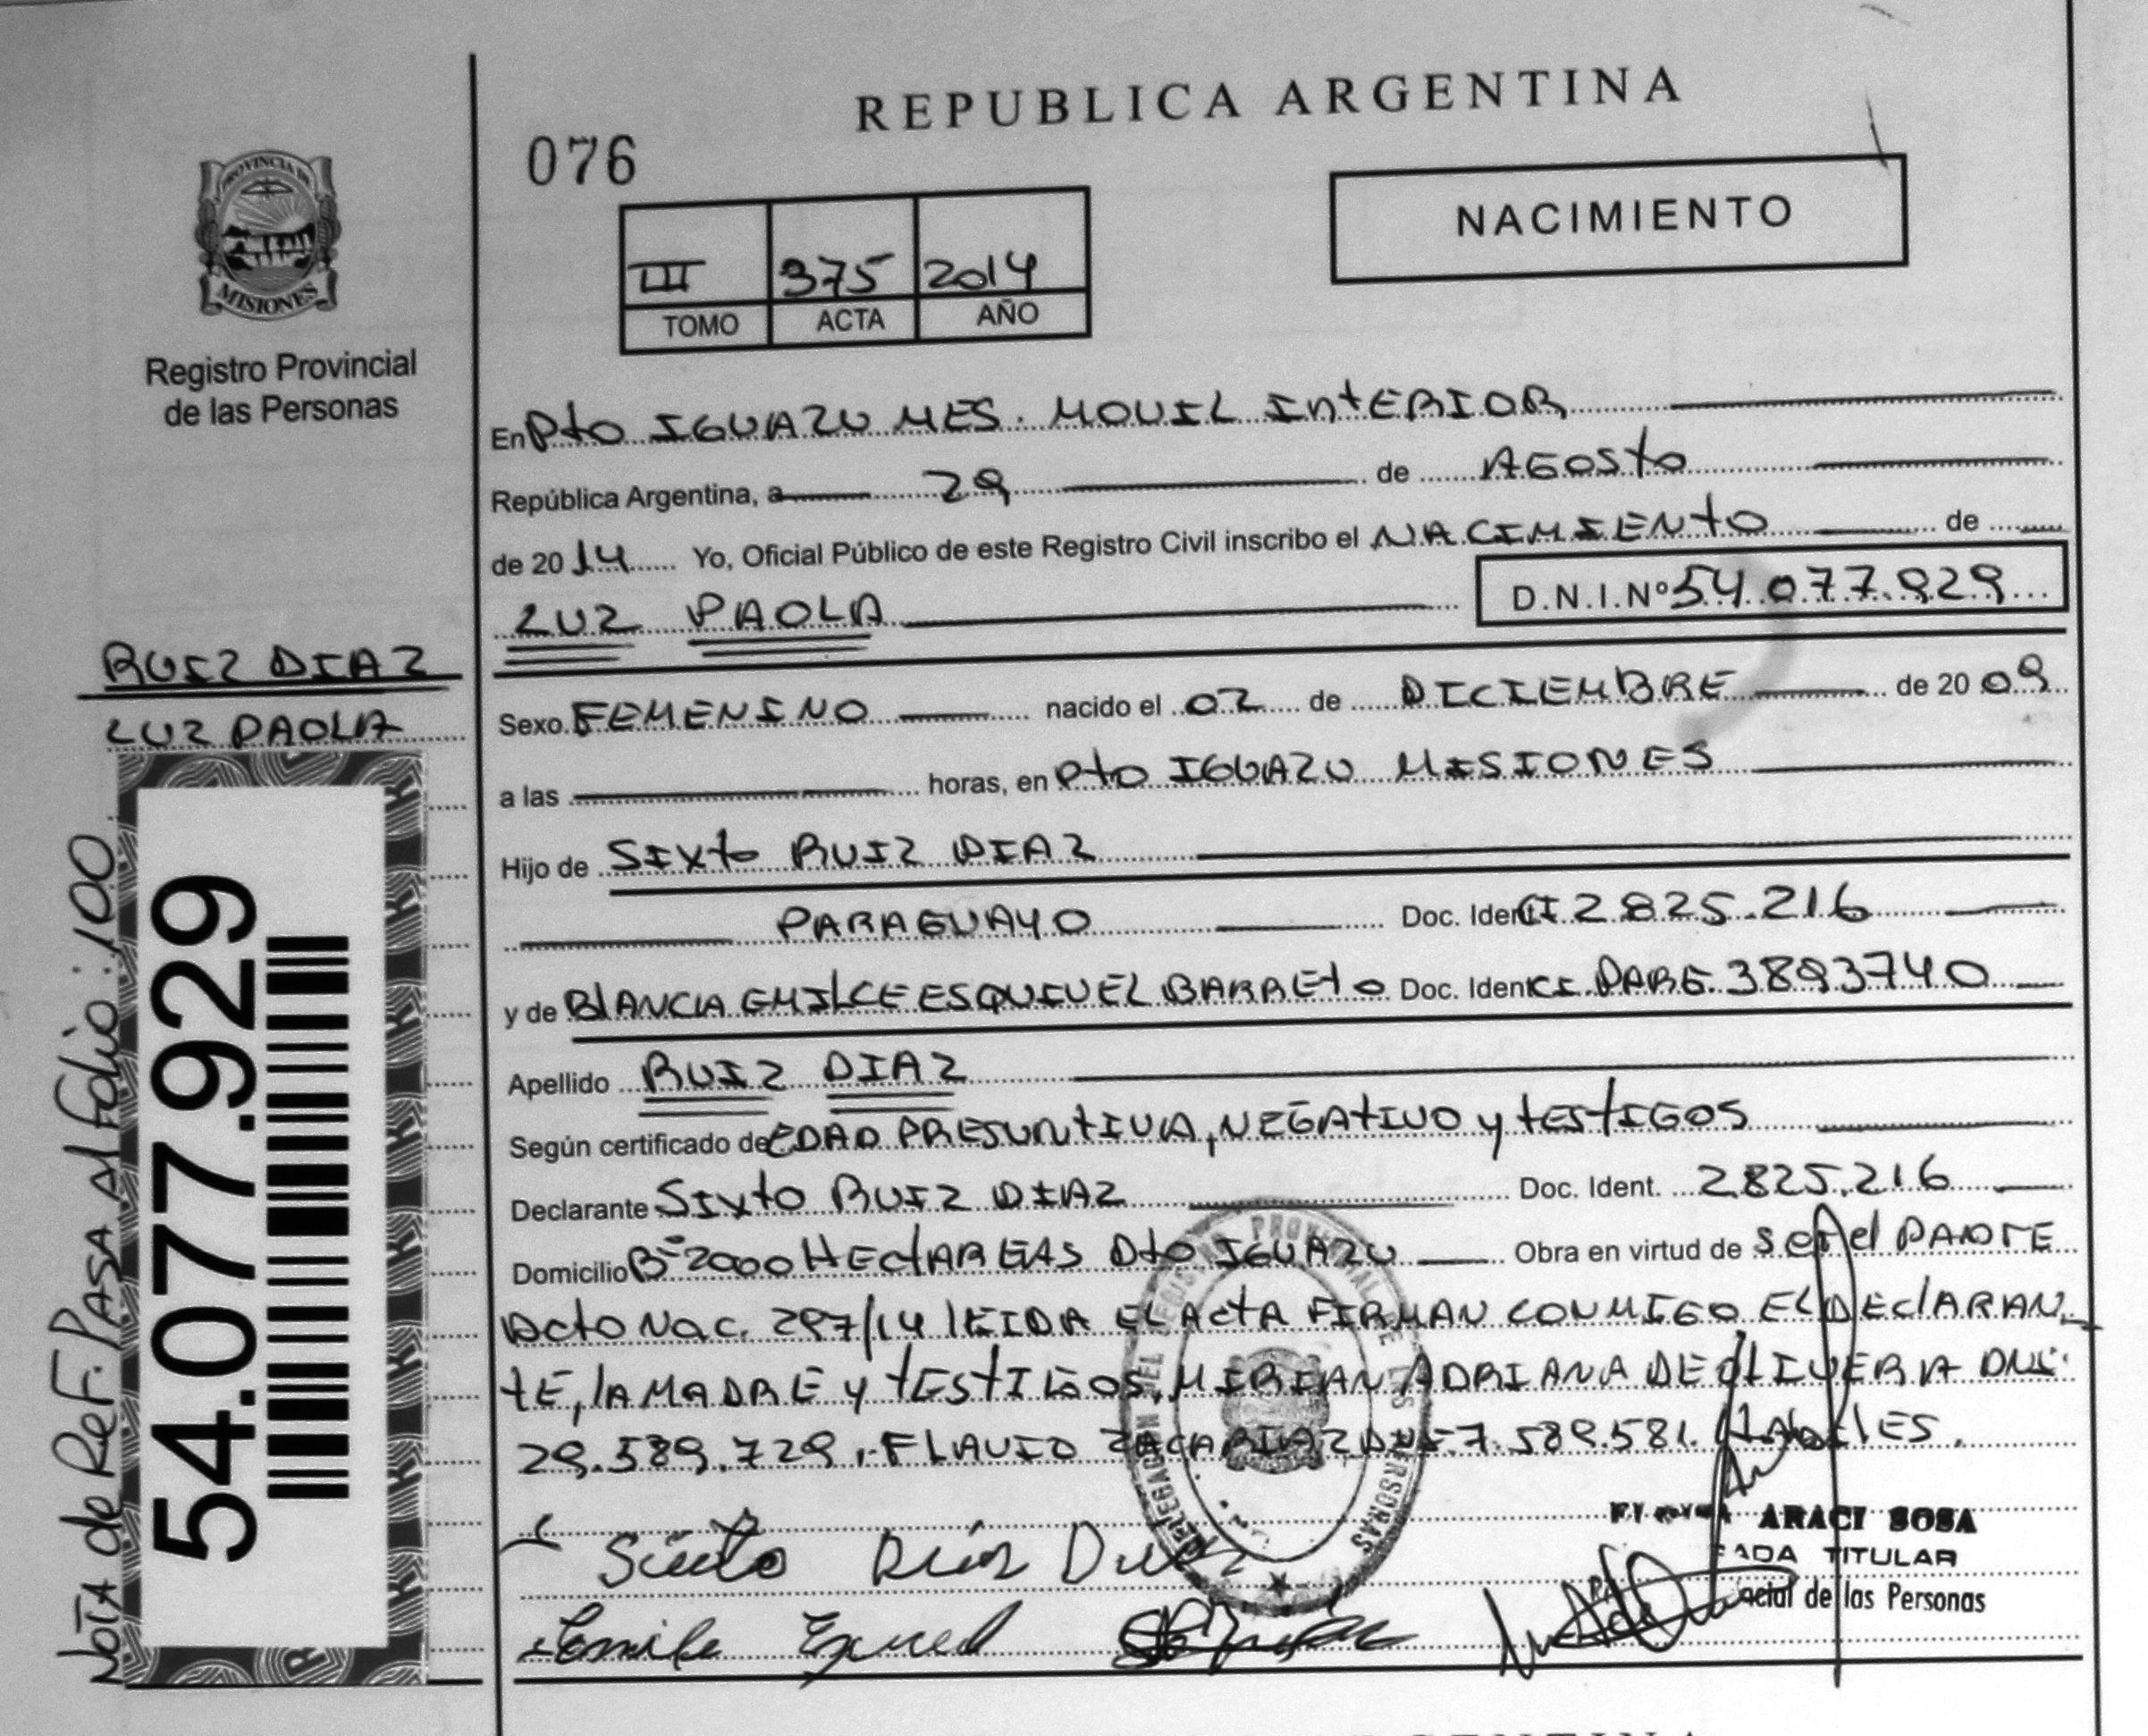 REPUBLICA ARGENTINA
076
NACIMIENTO
PROVINCIA DE
MISIONES
III 375 2014
TOMO ACTA AÑO
Registro Provincial
de las Personas
En Pto IGUAZU MES. MOVIL INtERIOR
República Argentina, a 29 de AGOSto
de 2014 Yo, Oficial Público de este Registro Civil inscribo el NACIMIENtO de
LUZ PAOLA D.N.I.Nº 54.077.929
RUIZ DIAZ
LUZ PAOLA
Sexo FEMENINO nacido el 02 de DICIEMBRE de 2009
a las horas, en Pto IGUAZU MISIONES
Hijo de SIXto RUIZ DIAZ
PARAGUAYO Doc. Ident. CI 2825.216
y de BlANCA EMILCE ESQUIVEL BARREtO Doc. Ident. CI. PARG. 3893740
Apellido RUIZ DIAZ
Según certificado de EDAD PRESUNtIVA, NEGAtIVO y tEStIGOS
Declarante SIXto RUIZ DIAZ Doc. Ident. 2825.216
Domicilio Bº 2000 HECtAREAS Pto IGUAZU Obra en virtud de SER el PADRE
Dcto Nac. 297/14 lEIDA El ActA FIRMAN CONMIGO El DEClARAN
tE, lA MADRE y tEStIGOS, MIRIAN ADRIANA DE OLIVERA DNI:
29.589.729, FLAVIO DNI 7.589.581. HABILES.
NOTA de REF. PASA Al Folio: 100
54.077.929
Sixto Ruiz Diaz
ARACI SOSA
TITULAR
de las Personas